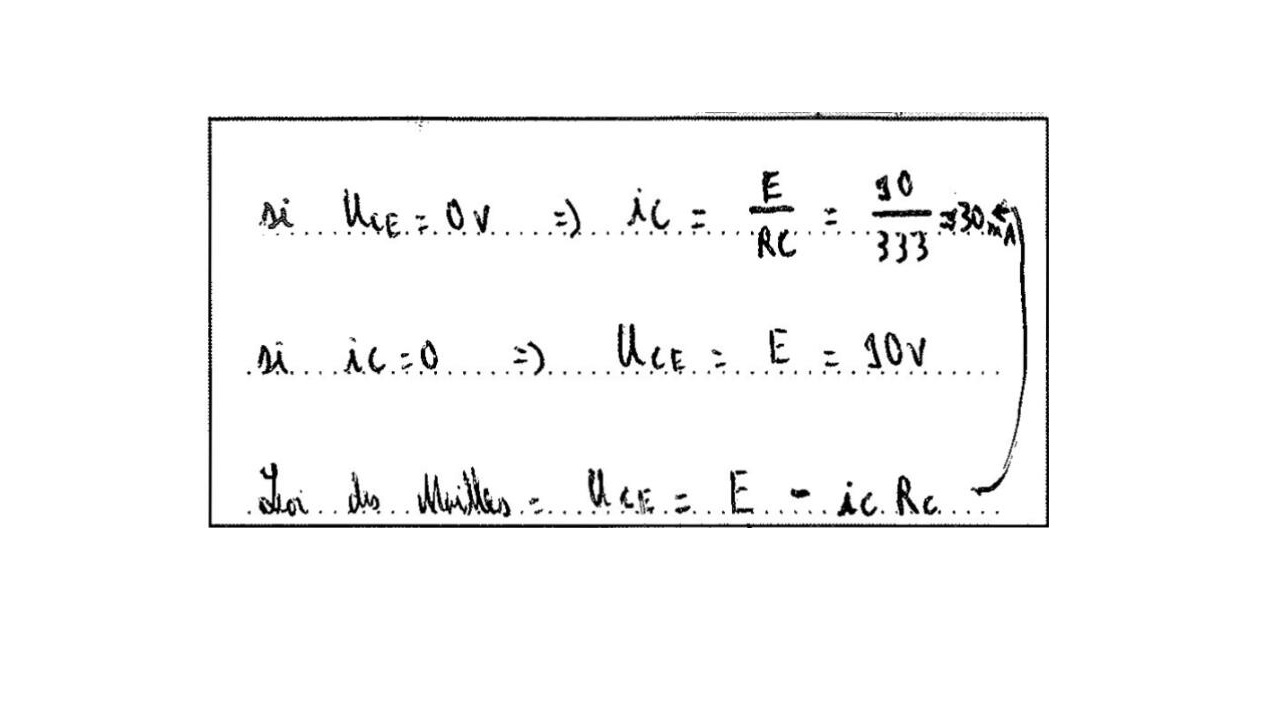 si U_CE = 0 v => ic = E/RC = 10/333 = 30 mA
si ic = 0 => U_CE = E = 10v
Loi des Mailles = U_CE = E - ic Rc